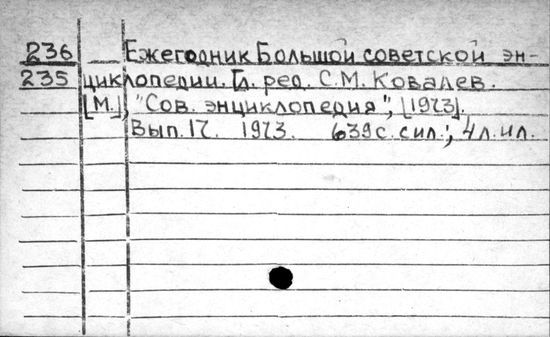 236 Ежегодник Большой советской эн-
235 циклопедии. Гл. ред. С.М. Ковалев.
[М.], "Сов. энциклопедия", [1973].
Вып. 17. 1973. 639 с. с ил.; 4 л. ил.